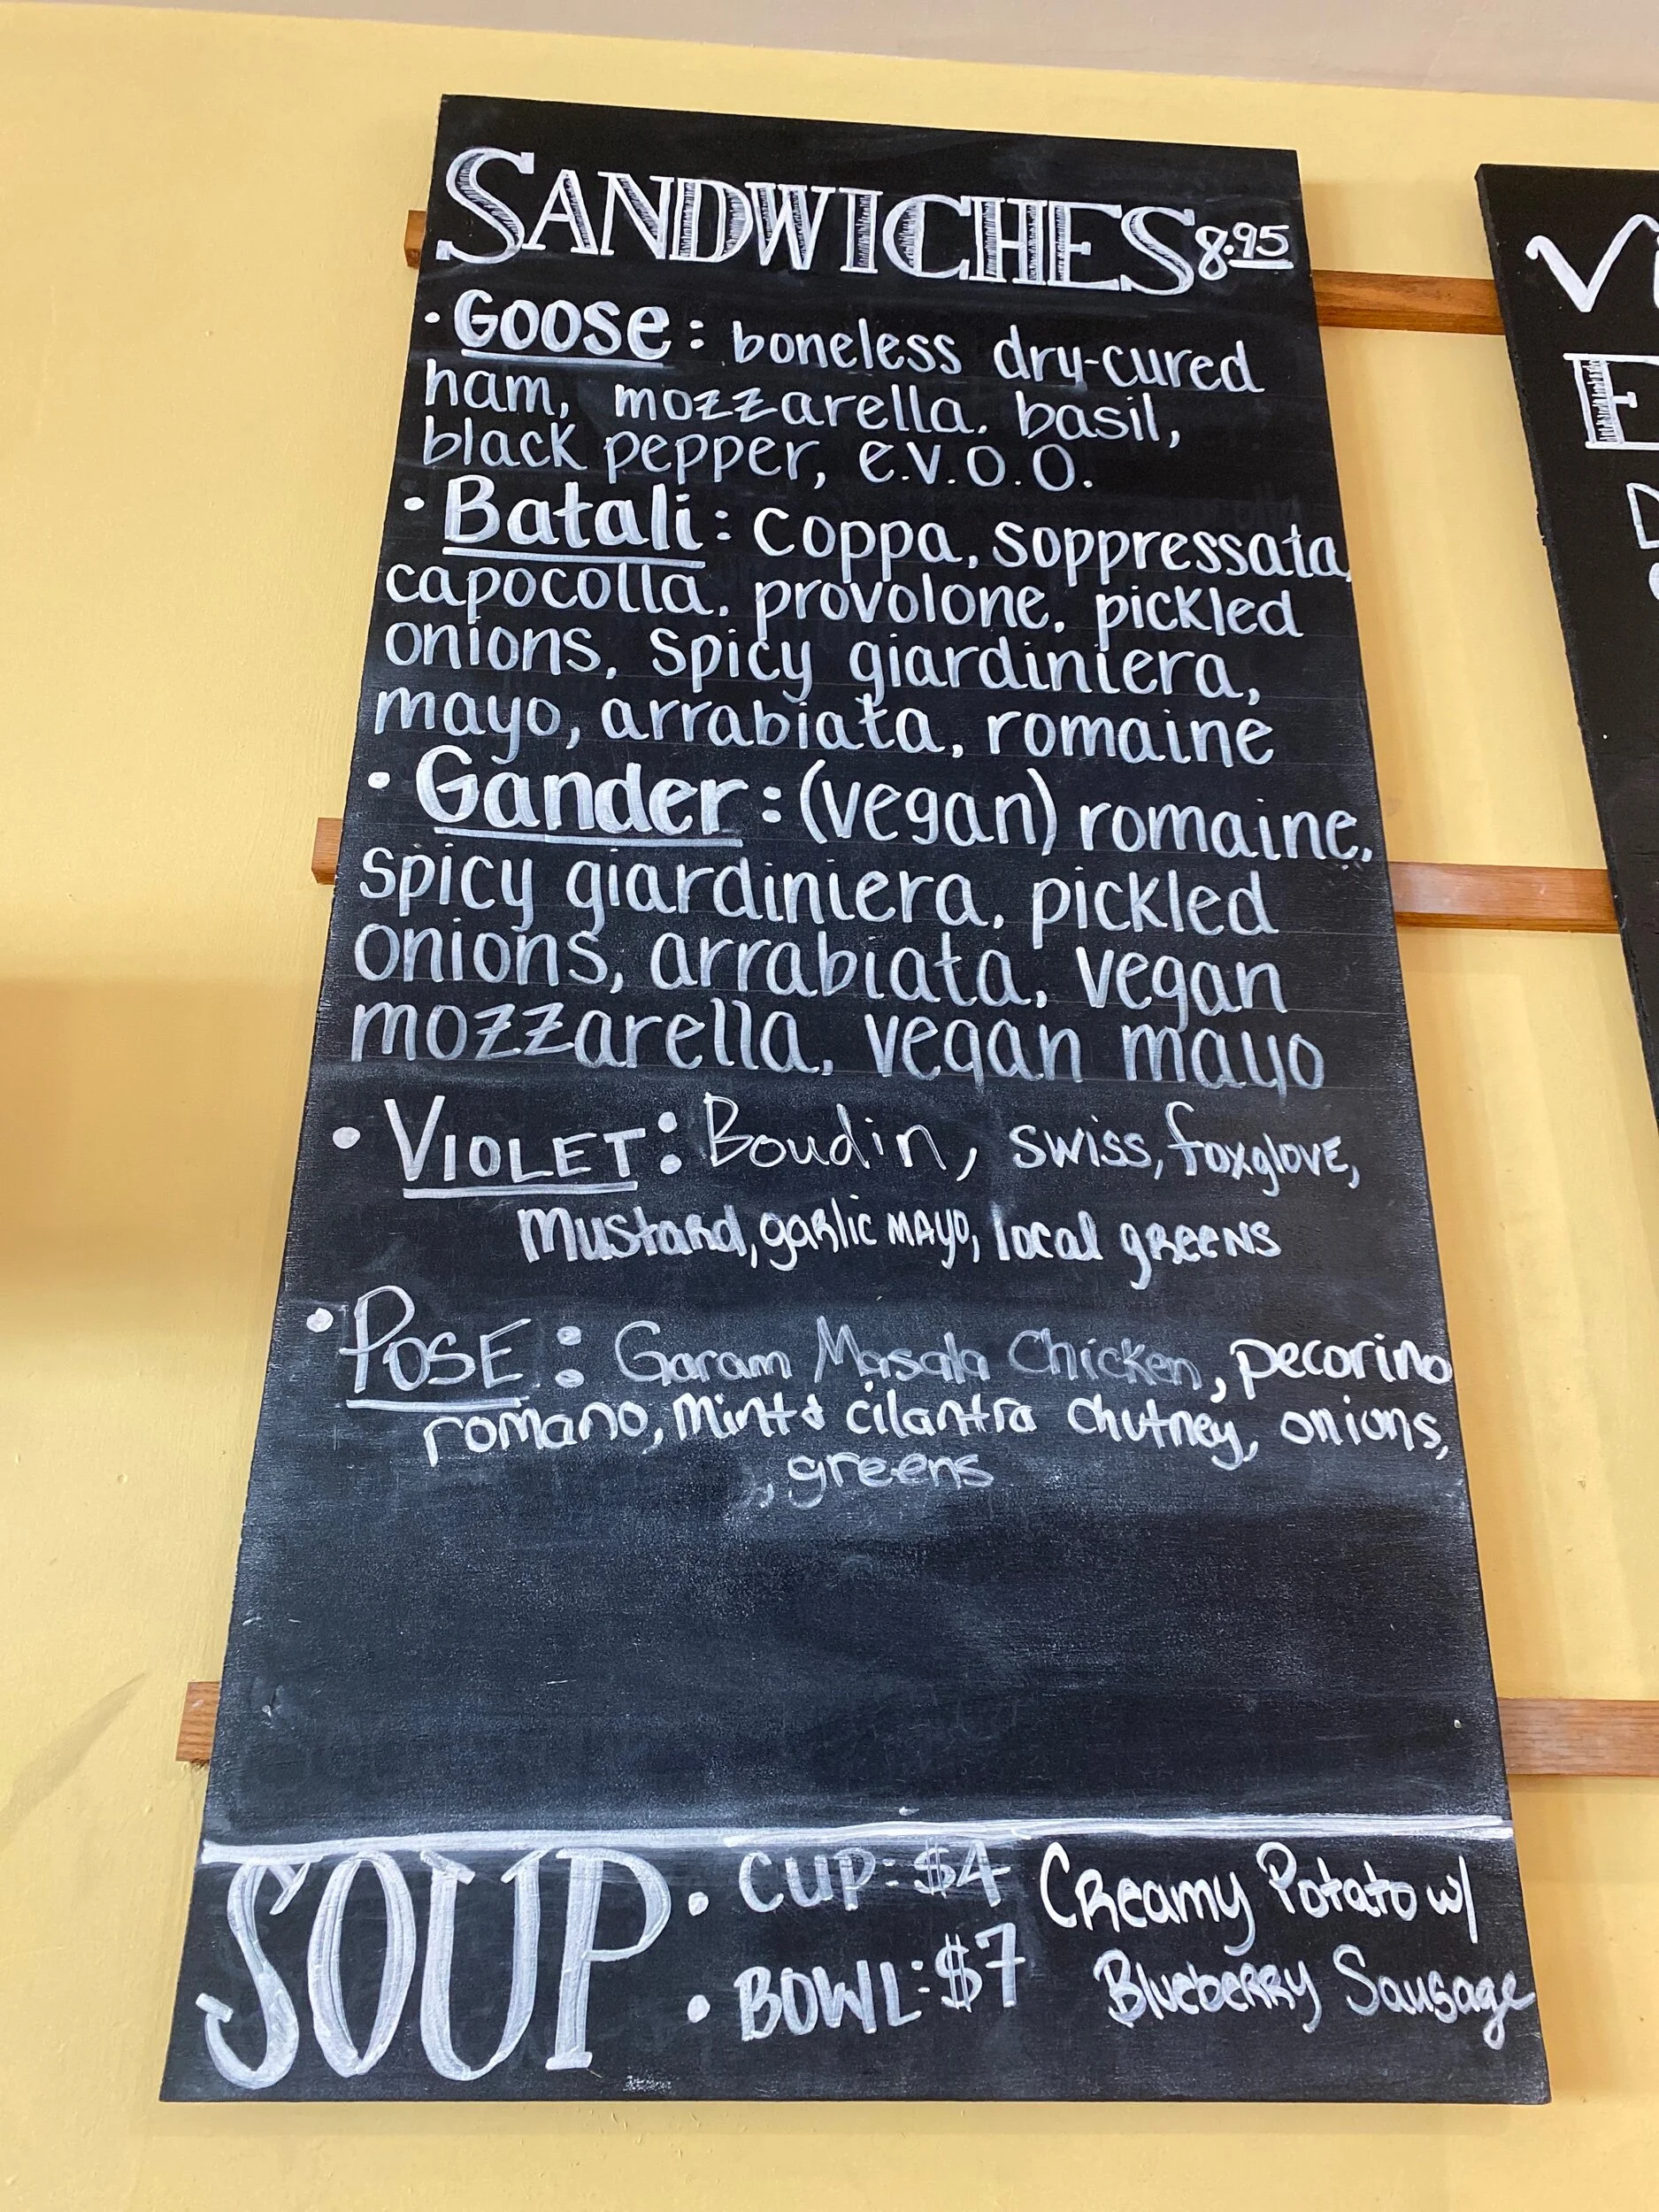 SANDWICHES 8.95
• Goose: boneless dry-cured
ham, mozzarella, basil,
black pepper, e.v.o.o.
• Batali: coppa, soppressata,
capocolla, provolone, pickled
onions, spicy giardiniera,
mayo, arrabiata, romaine
• Gander: (vegan) romaine,
spicy giardiniera, pickled
onions, arrabiata, vegan
mozzarella, vegan mayo
• VIOLET: Boudin, swiss, foxglove,
mustard, garlic mayo, local greens
• POSE: Garam Masala Chicken, pecorino
romano, mint & cilantra chutney, onions,
, greens
SOUP • CUP: $4 Creamy Potato w/
• BOWL: $7 Blueberry Sausage